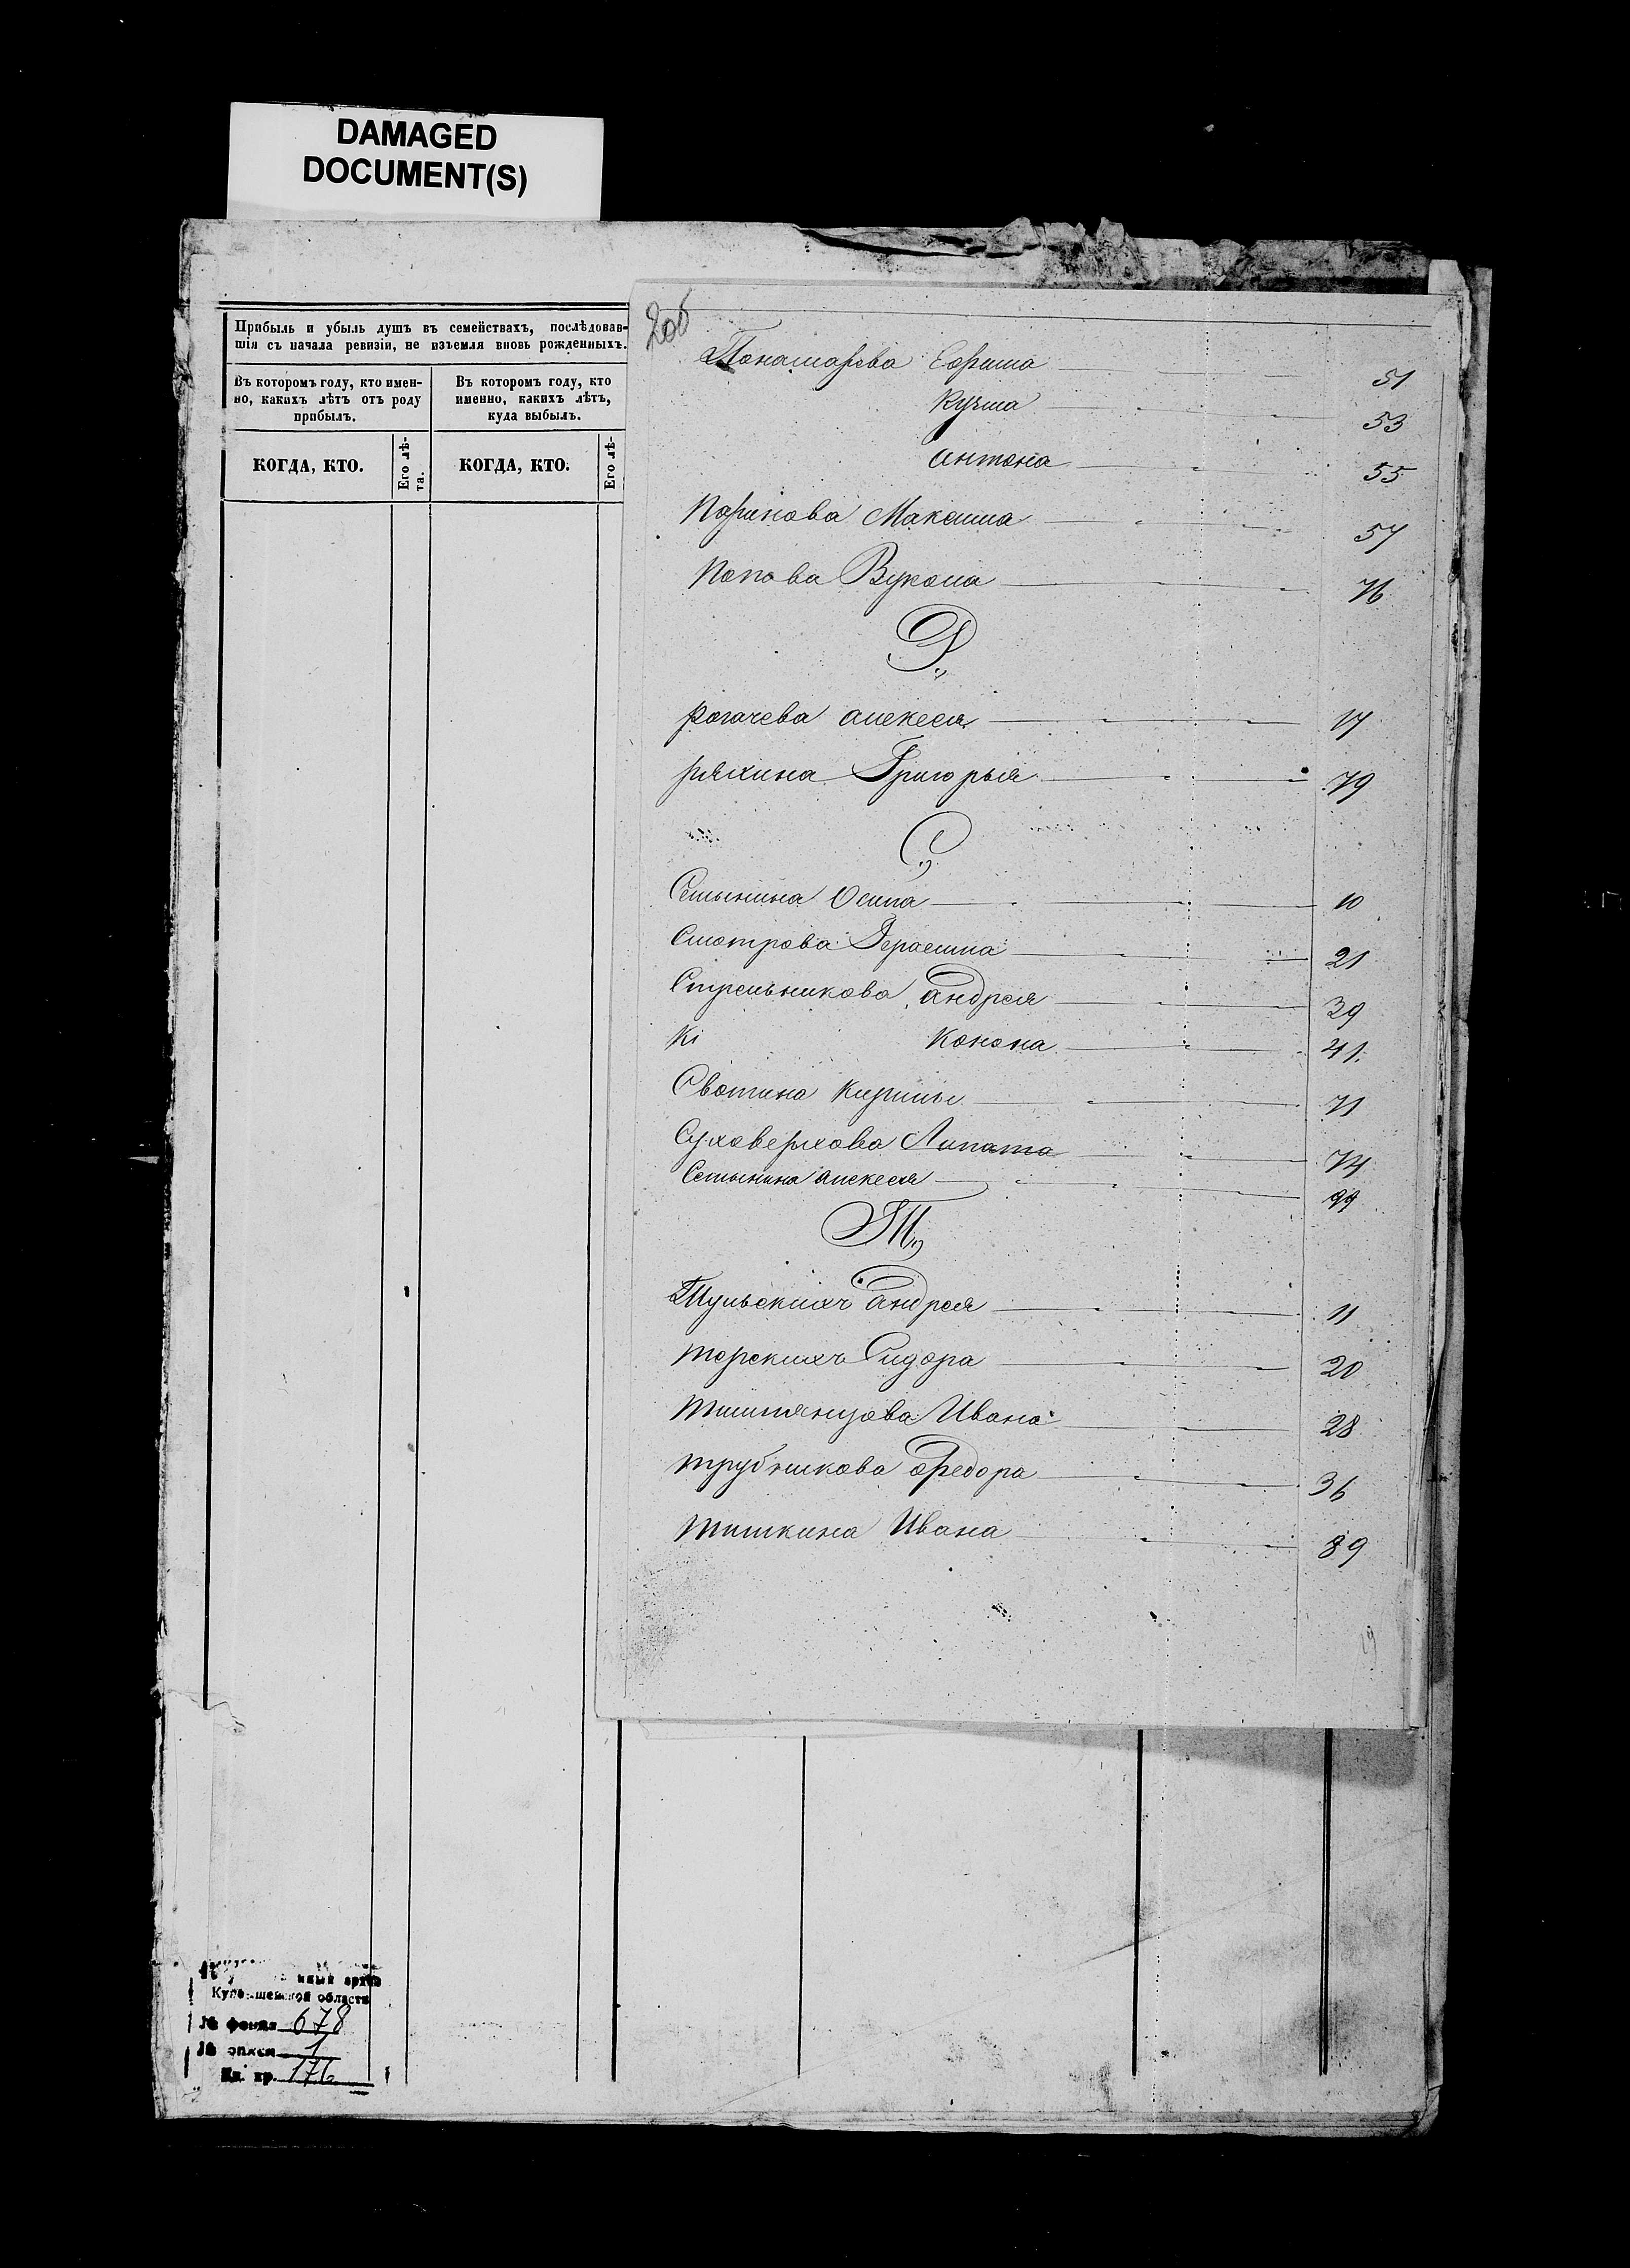 DAMAGED
DOCUMENT(S)
Прибыль и убыль душъ въ семействахъ, послѣдовав-
шія съ начала ревизіи, не изъемля вновь рожденныхъ.
Въ которомъ году, кто имен-
но, какихъ лѣтъ отъ роду
прибылъ.
Въ которомъ году, кто
именно, какихъ лѣтъ,
куда выбылъ.
КОГДА, КТО.
Его лѣ-
та.
КОГДА, КТО.
Его лѣ-
206
Понамарева Ефима 51
Кузма 53
Антона 55
Паринова Максима 57
Попова Вукола 76
Р.
Рогачева Алексея 17
Ряхина Григорья 79
С.
Семынина Осипа 10
Смотрова Герасима 21
Стрельникова Андрея 39
Кі Конона 41.
Сватина Кирилы 71
Суховерхова Липата 74
Семынина Алексея 99
Т.
Тульскихъ Андрея 11
Терскихъ Сидора 20
Тимтянцова Ивана 28
Трубникова Федора 36
Тишкина Ивана 89
ный архив
Куйбышевской области
№ фонда 678
№ описи 1
Ед. хр. 176